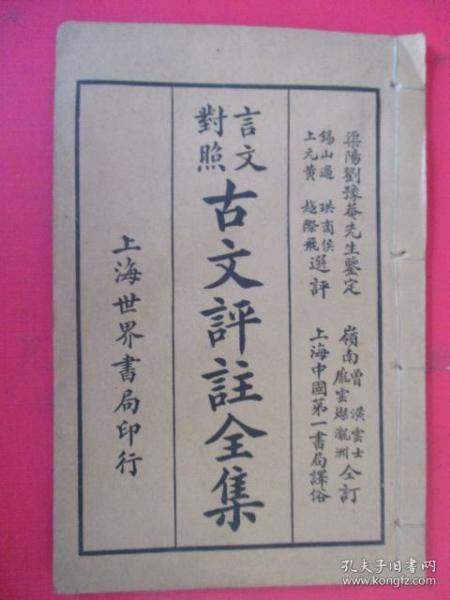 梁陽劉豫菴先生鑒定
錫山過珙商侯
上元黃越際飛
選評
嶺南曾漢雲士
龐雲燦瀧洲
仝訂
上海中國第一書局譯俗
言文
對照
古文評註全集
上海世界書局印行
孔夫子旧书网
www.kongfz.com